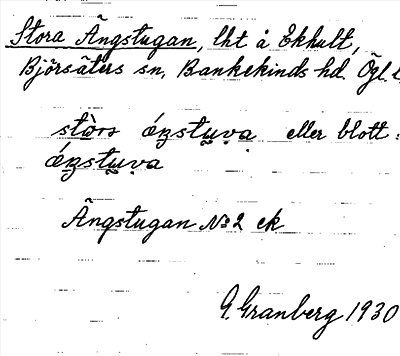 Stora Ängstugan, lht å Ekhult,
Björsäters sn, Bankekinds hd. Ögl. l
stɷ̀rs ǽŋstuva eller blott:
ǽŋstuva
Ängstugan № 2 ek
G. Granberg 1930